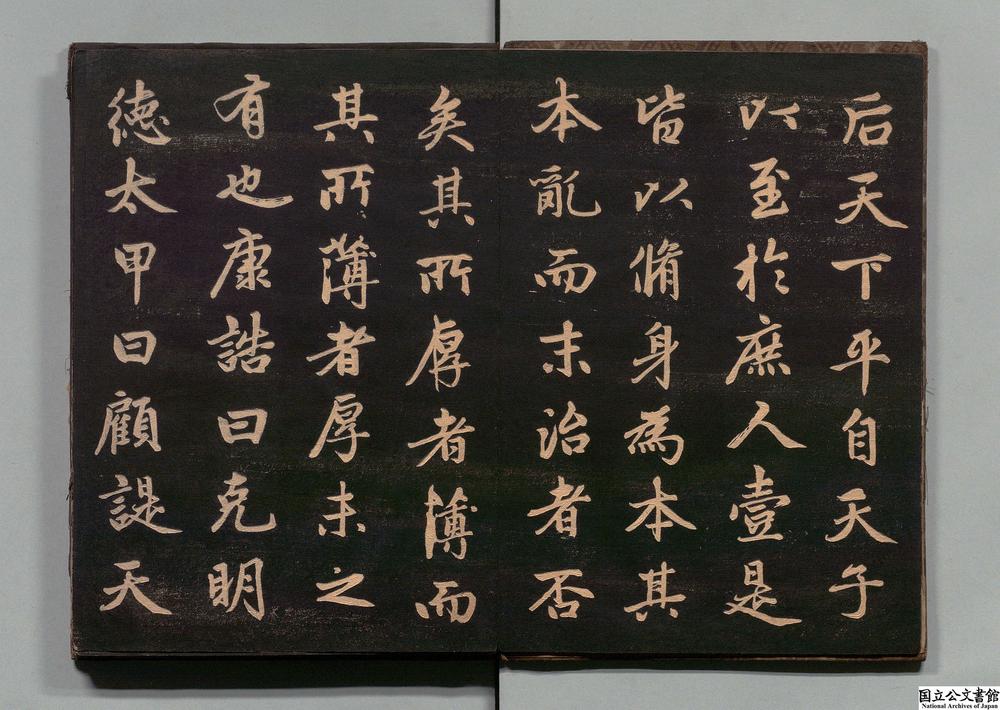 后天下平自天子
以至於庶人壹是
皆以脩身為本其
本亂而末治者否
矣其所厚者薄而
其所薄者厚未之
有也康誥曰克明
德太甲曰顧諟天
国立公文書館
National Archives of Japan